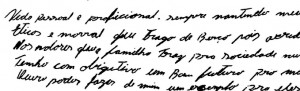 Vida pessoal e proficional. sempre mantendo meu
Éticos e morral que trago de Berço pós acredi
Nos valores que a familha traz pra sociedade
Tenho com obigetivo um Bom futuro pra
Quero poder fazer de mim um exemplo pra